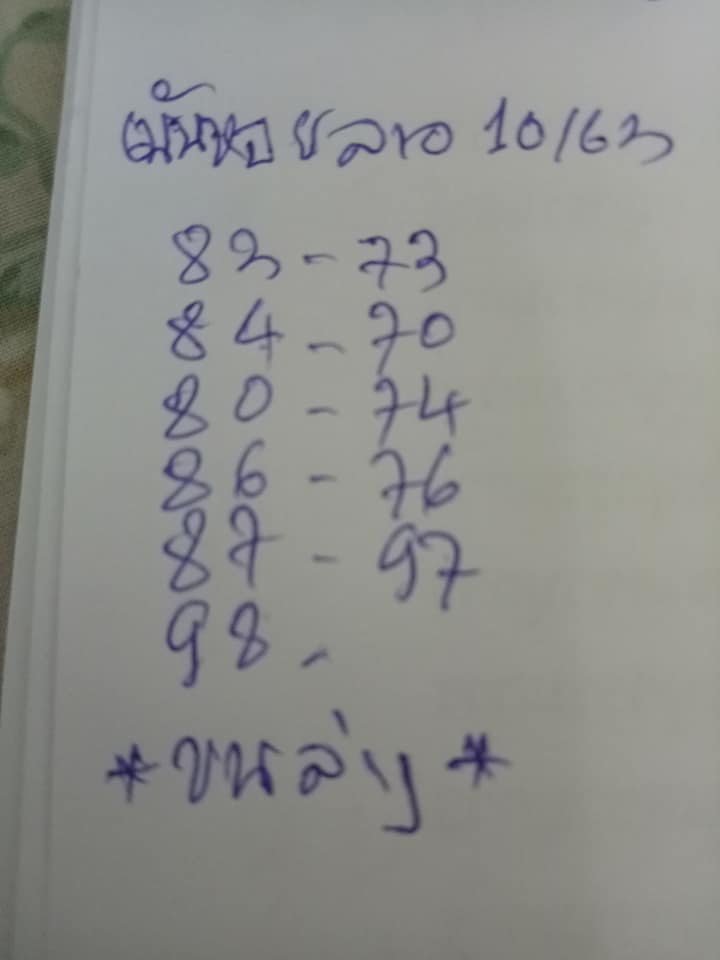 มันหวยลาว 10/63
83 - 73
84 - 70
80 - 74
86 - 76
87 - 97
98 -
*บนล่าง*